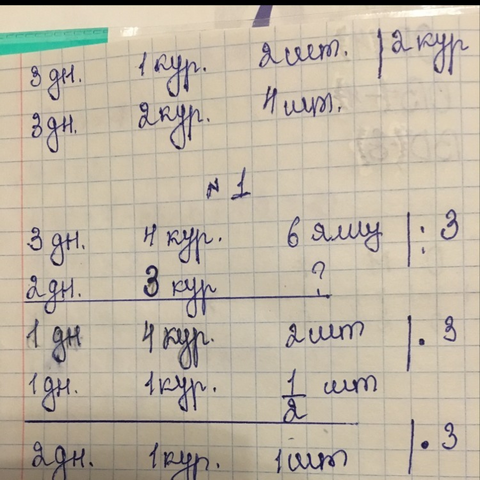 3 дн. 1 кур. 2 шт. | 2 кур
3 дн. 2 кур. 4 шт.
№ 1
3 дн. 4 кур. 6 яиц | : 3
2 дн. 3 кур ?
1 дн 4 кур. 2 шт | · 3
1 дн. 1 кур. 1/2 шт
2 дн. 1 кур. 1 шт | · 3